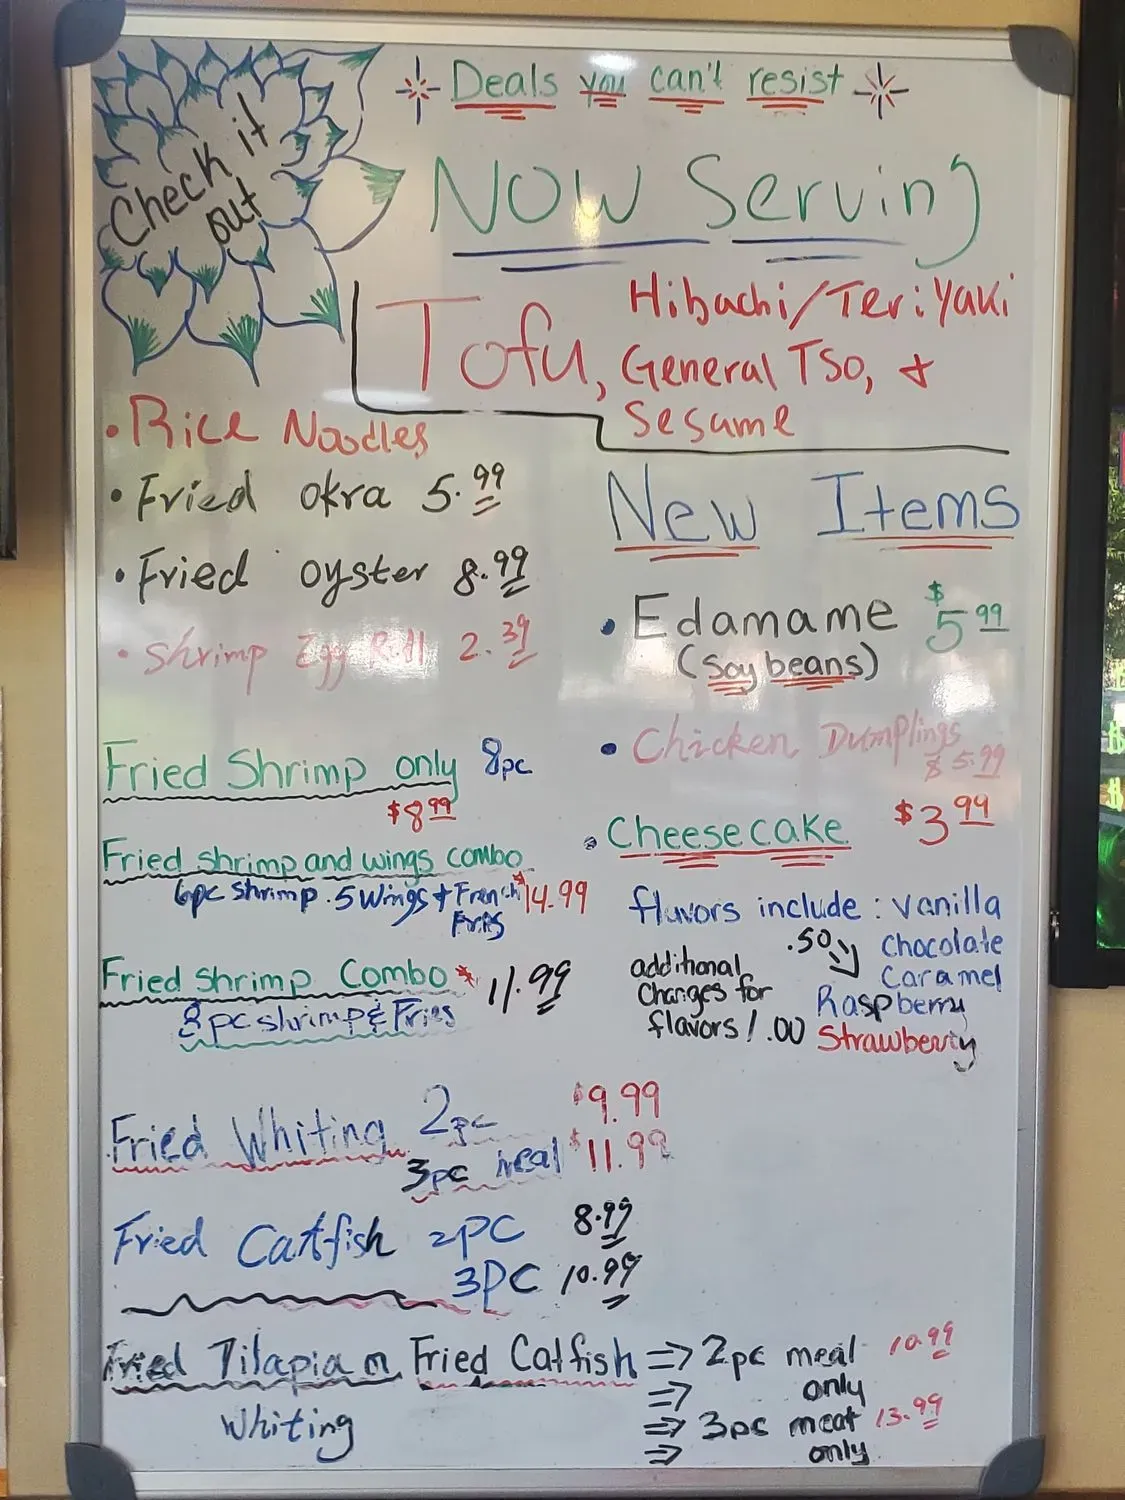 Deals you can't resist
Check it
out
NOW Serving
Tofu, Hibachi/Teriyaki
General TSO, &
Sesame
• Rice Noodles
• Fried okra 5.99
• Fried oyster 8.99
• Shrimp Egg Roll 2.39
New Items
• Edamame $5 99
(Soy beans)
• Chicken Dumplings
$5.99
• Cheesecake $3 99
flavors include: vanilla
.50 Chocolate
Caramel
additional
Charges for
flavors 1.00
Raspberry
Strawberry
Fried Shrimp only 8pc
$8 99
Fried shrimp and wings combo
6pc shrimp. 5 Wings + French $14.99
Fries
Fried Shrimp Combo $11.99
8pc shrimp & Fries
Fried Whiting 2pc $9.99
3pc meal $11.99
Fried Catfish 2PC 8.99
3PC 10.99
Fried Tilapia or Fried Catfish ⇒ 2pc meal 10.99
⇒ only
Whiting ⇒ 3pc meat 13.99
⇒ only